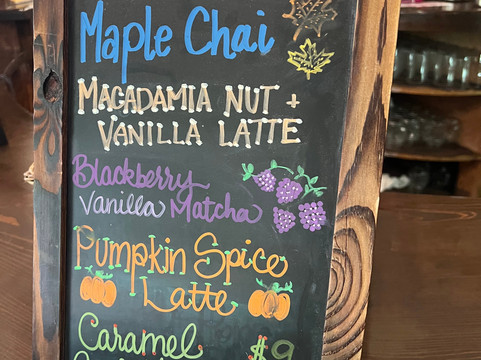 Maple Chai
MACADAMIA NUT +
VANILLA LATTE
Blackberry
Vanilla Matcha
Pumpkin Spice
Latte
Caramel
$9